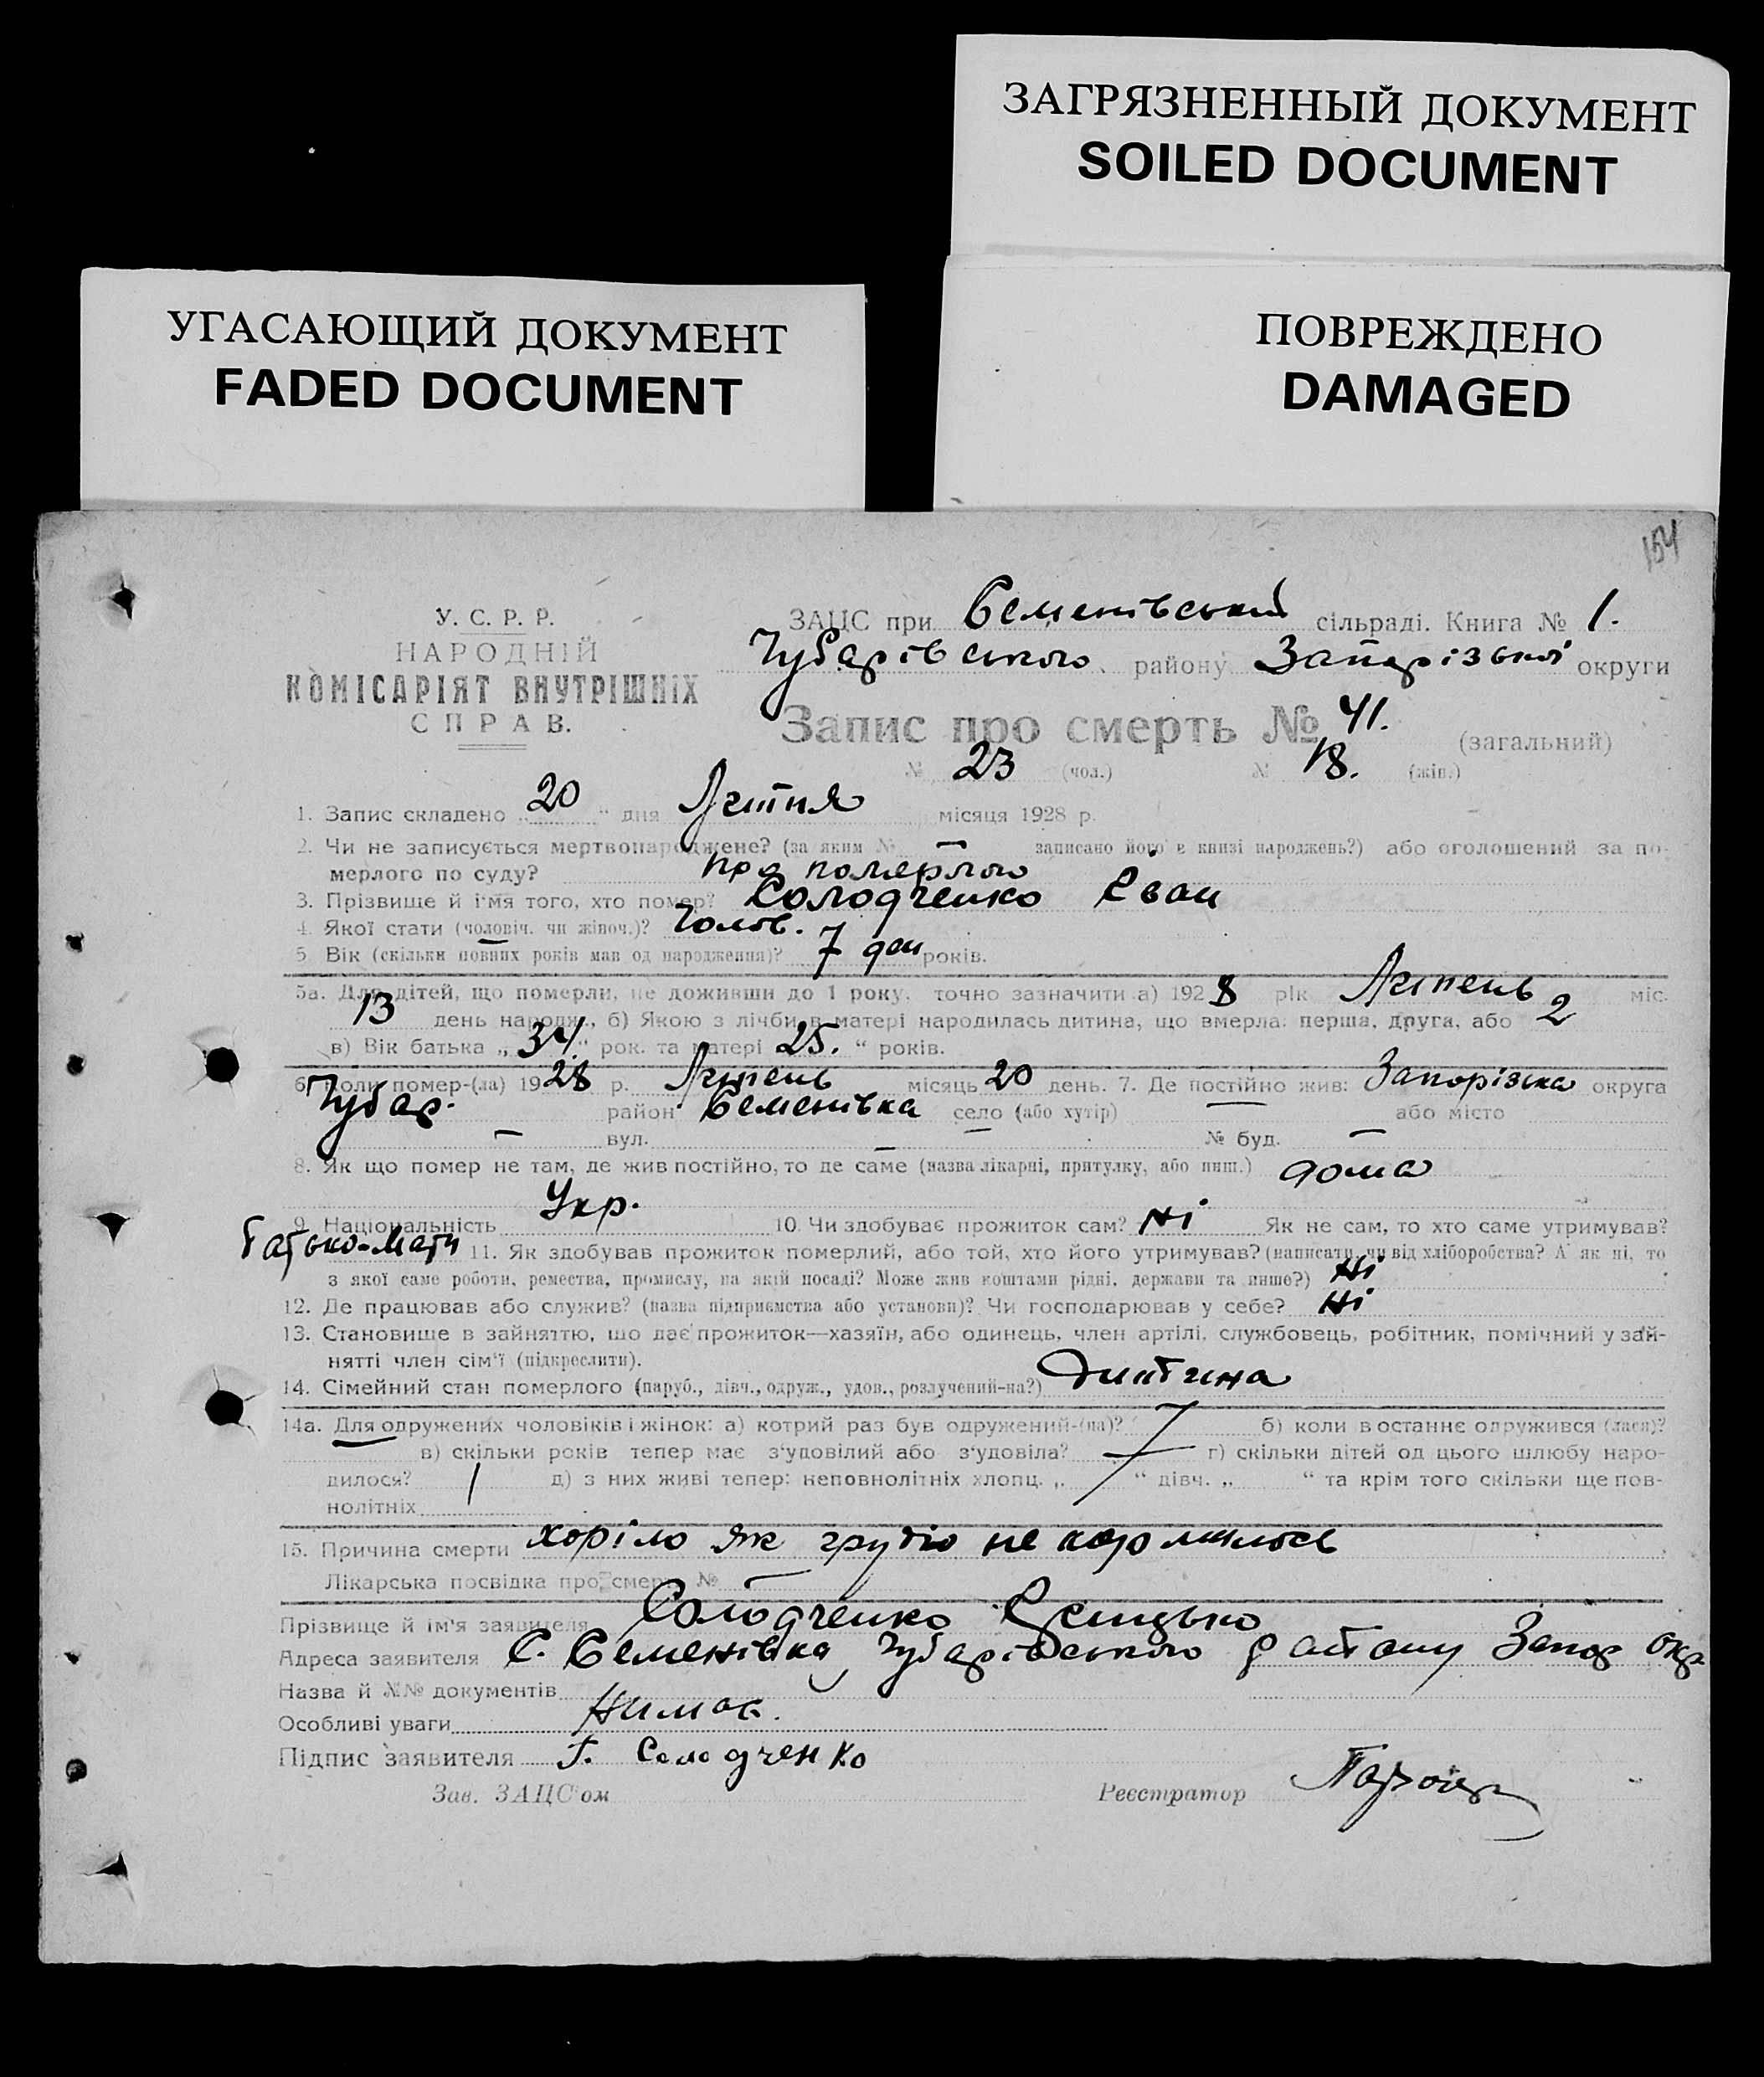 ЗАГРЯЗНЕННЫЙ ДОКУМЕНТ
SOILED DOCUMENT
УГАСАЮЩИЙ ДОКУМЕНТ
FADED DOCUMENT
ПОВРЕЖДЕНО
DAMAGED
154
У. С. Р. Р.
НАРОДНІЙ
КОМІСАРІЯТ ВНУТРІШНІХ
СПРАВ.
ЗАЦС при Семенівський сільраді. Книга № 1.
Чубарівського району Запорізької округи
Запис про смерть № 41. (загальний)
№ 23 (чол.) № 18. (жін.)
1. Запис складено „ 20 “ дня Липня місяця 1928 р.
2. Чи не записується мертвонароджене? (за яким № — записано його в книзі народжень?) або оголошений за по-
мерлого по суду? про померлого
3. Прізвище й ім'я того, хто помер? Солодченко Єван
4. Якої стати (чоловіч. чи жіноч.)? Чолов.
5. Вік (скільки повних років мав од народження)? 7 ден років.
5а. Для дітей, що померли, не доживши до 1 року, точно зазначити а) 1928 рік Липень міс.
13 день народж., б) Якою з лічби в матері народилась дитина, що вмерла: перша, друга, або 2
в) Вік батька „ 34. “ рок. та матері 25. “ років.
6. Коли помер-(ла) 1928 р. Липень місяць 20 день. 7. Де постійно жив: Запорізька округа
Чубар. район Семенівка село (або хутір) — або місто
— вул. — № буд. —
8. Як що помер не там, де жив постійно, то де саме (назва лікарні, притулку, або инш.) дома
9. Національність Укр. 10. Чи здобуває прожиток сам? Ні Як не сам, то хто саме утримував?
Батько-Мати 11. Як здобував прожиток померлий, або той, хто його утримував? (написати, чи від хліборобства? А як ні, то
з якої саме роботи, ремества, промислу, на якій посаді? Може жив коштами рідні, держави та инше?) Ні
12. Де працював або служив? (назва підприємства або установи)? Чи господарював у себе? Ні
13. Становище в зайняттю, що дає прожиток—хазяїн, або одинець, член артілі, службовець, робітник, помічний у зай-
нятті член сім'ї (підкреслити).
14. Сімейний стан померлого (паруб., дівч., одруж., удов., розлучений-на?)
14а. Для одружених чоловіків і жінок: а) котрий раз був одружений-(на)? б) коли востаннє одружився (лася)?
в) скільки років тепер має з'удовілий або з'удовіла? г) скільки дітей од цього шлюбу наро-
дилося? д) з них живі тепер: неповнолітніх хлопц. „ “ дівч. „ “ та крім того скільки ще пов-
нолітніх
15. Причина смерти хоріло як грудію не кормилось
Лікарська посвідка про смерть № —
Прізвище й ім'я заявителя Солодченко
Адреса заявителя С. Семенівка, Чубарівського району Запор окр
Назва й №№ документів
Особливі уваги Нимає.
Підпис заявителя Г. Солодченко
Зав. ЗАЦС'ом Реєстратор